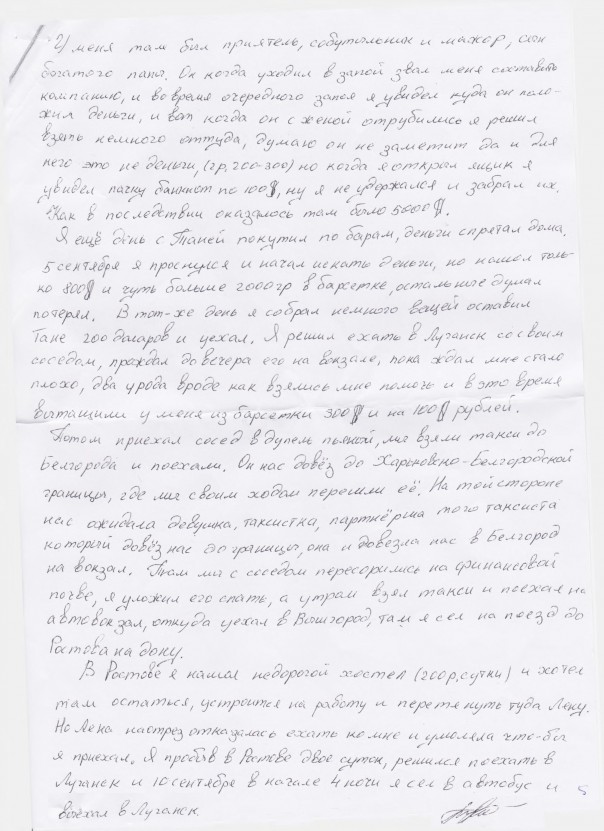 2) меня там был приятель, собутыльник и мажор, сын
богатого папы. Он когда уходил в запой звал меня составить
компанию, и во время очередного запоя я увидел куда он поло-
жил деньги, и вот когда он с женой отрубились я решил
взять немного оттуда, думаю он не заметит да и для
него это не деньги, (гр, 200-300) но когда я открыл ящик я
увидел пачку банкнот по 100$, ну я не удержался и забрал их.
Как в последствии оказалось там было 5000$.
Я ещё день с Таней покутил по барам, деньги спрятал дома.
5 сентября я проснулся и начал искать деньги, но нашел толь-
ко 800$ и чуть больше 2000гр в барсетке, остальные думал
потерял. В тот-же день я собрал немного вещей оставил
Тане 200 доларов и уехал. Я решил ехать в Луганск со своим
соседом, прождал до вечера его на вокзале, пока ждал мне стало
плохо, два урода вроде как взялись мне помочь и в это время
вытащили у меня из барсетки 300$ и на 100$ рублей.
Потом приехал сосед в дупель пьяной, мы взяли такси до
Белгорода и поехали. Он нас довёз до Харьковско-Белгородской
границы, где мы своим ходом перешли её. На той стороне
нас ожидала девушка, таксистка, партнёрша того таксиста
который довёз нас до границы, она и довезла нас в Белгород
на вокзал. Там мы с соседом пересорились на финансовой
почве, я уложил его спать, а утром взял такси и поехал на
автовокзал, откуда уехал в Вышгород, там я сел на поезд до
Ростова на дону.
В Ростове я нашел недорогой хостел (200р, сутки) и хотел
там остаться, устроится на работу и перетянуть туда Лену.
Но Лена настрез отказалась ехать ко мне и умоляла что-бы
я приехал. Я пробыв в Ростове двое суток, решился поехать в
Луганск и 10 сентября в начале 4 ночи я сел в автобус и
выехал в Луганск.